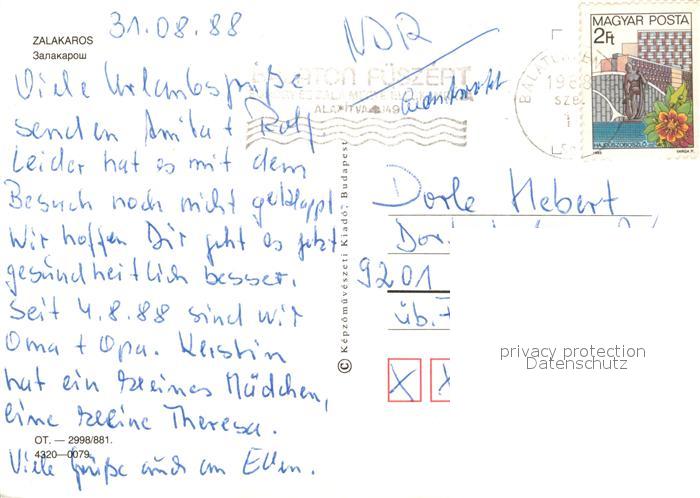 31.08.88
ZALAKAROS
Залакарош
Viele Urlaubsgrüße
senden Anita + Rolf.
Leider hat es mit dem
Besuch noch nicht geklappt
Wir hoffen Dir geht es jetzt
gesundheitlich besser.
Seit 4.8.88 sind wir
Oma + Opa. Kerstin
hat ein kleines Mädchen,
eine kleine Theresa.
Viele Grüße auch an Ellen.
OT. — 2998/881.
4320—0079
© Képzőművészeti Kiadó, Budapest
NDR
BALATON FÜSZÉRT
ALAPÍTVA 1949
BALATON
1988
SZE
MAGYAR POSTA
2Ft
HAJDÚSZOBOSZLÓ
Dorle Hebert
Dor.
9201
üb. F
X X
privacy protection
Datenschutz